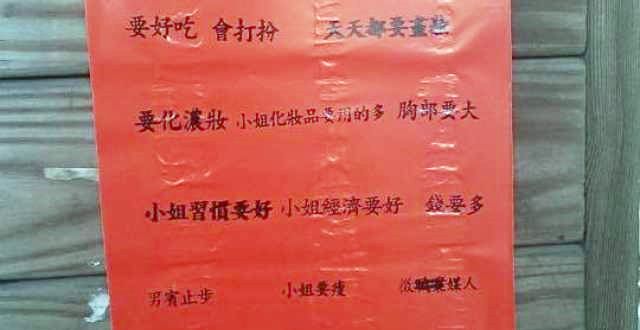 要好吃 會打扮 天天都要畫妝
要化濃妝 小姐化妝品要用的多 胸部要大
小姐習慣要好 小姐經濟要好 錢要多
男賓止步 小姐要瘦 徵 媒人